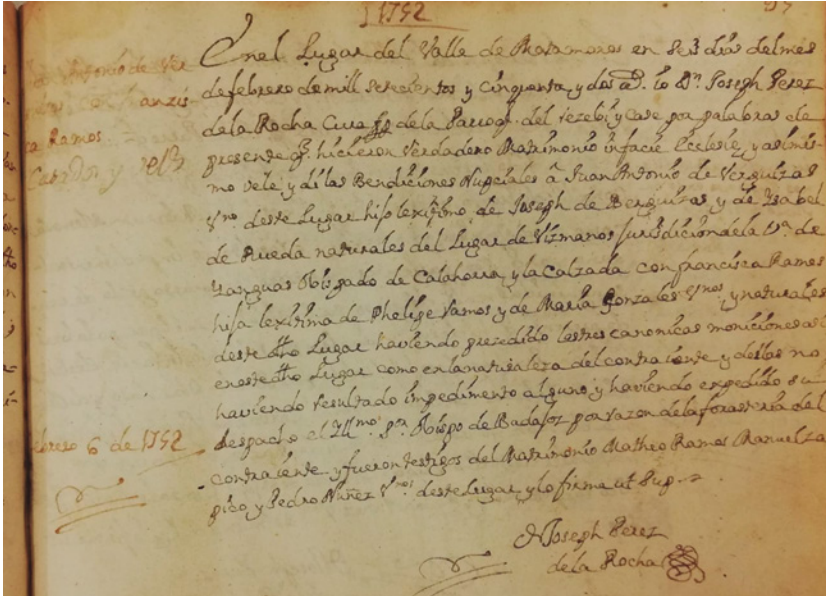 1752
Juan Antonio de Ver
guizas con Franzis
ca Ramos.
Casados y
En el Lugar del Valle de Matamoros en seis dias del mes
de febrero de mill setecientos y cinquenta y dos a.ˢ Io Dⁿ. Joseph Perez
de la Rocha Cura de la Parroq.ˡ del rezebi y case por palabras de
presente q.ᵉ hicieron Verdadero Matrimonio infacie Eclesie, y asimis-
mo vele y di las Bendiciones Nupciales â Juan Antonio de Verguizas
Vᵒ. deste Lugar hijo lexitimo, de Joseph de Berguizas, y de Ysabel
de Rueda naturales del Lugar de Vizmanos Jurisdicion de la Vᵃ. de
Yanguas Obispado de Calahorra, y la Calzada con francisca Ramos
hija lexitima de Phelipe Ramos y de Maria Gonzales Vᵒˢ. y naturales
deste dho Lugar haviendo prezedido las tres canonicas moniciones asi
en este dho Lugar como en la naturaleza del contraiente y dellas no
haviendo resultado impedimento alguno, y haviendo expedido su
despacho el Illmo. Sᵒʳ. Obispo de Badajoz por razon de la forasteria del
contraiente y fueron testigos del Matrimonio Matheo Ramos Manuel za
pico, y Pedro Nuñez Vᵒˢ deste Lugar y lo firma ut Sup.ᵃ
Febrero 6 de 1752
Joseph Perez
de la Rocha